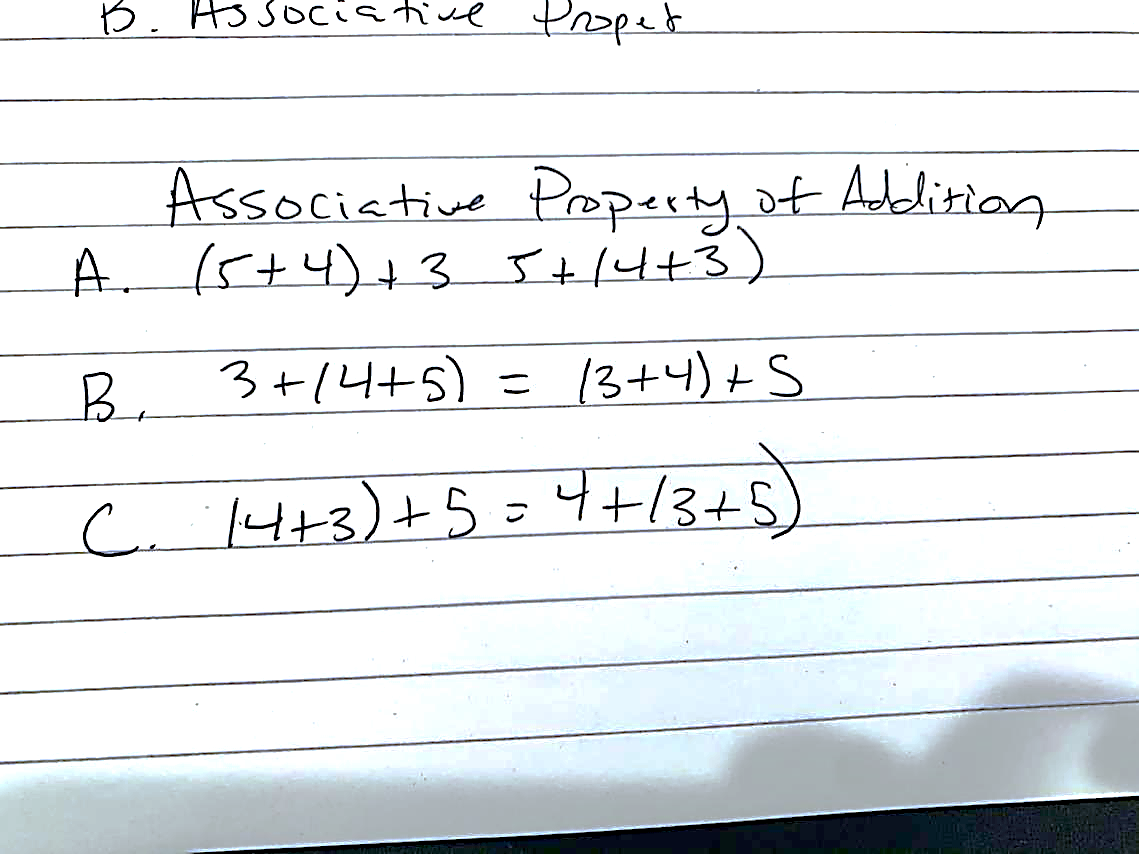 B. Associative Propet
Associative Property of Addition
A. (5+4)+3 5+(4+3)
B. 3+(4+5) = (3+4)+5
C. (4+3)+5 = 4+(3+5)